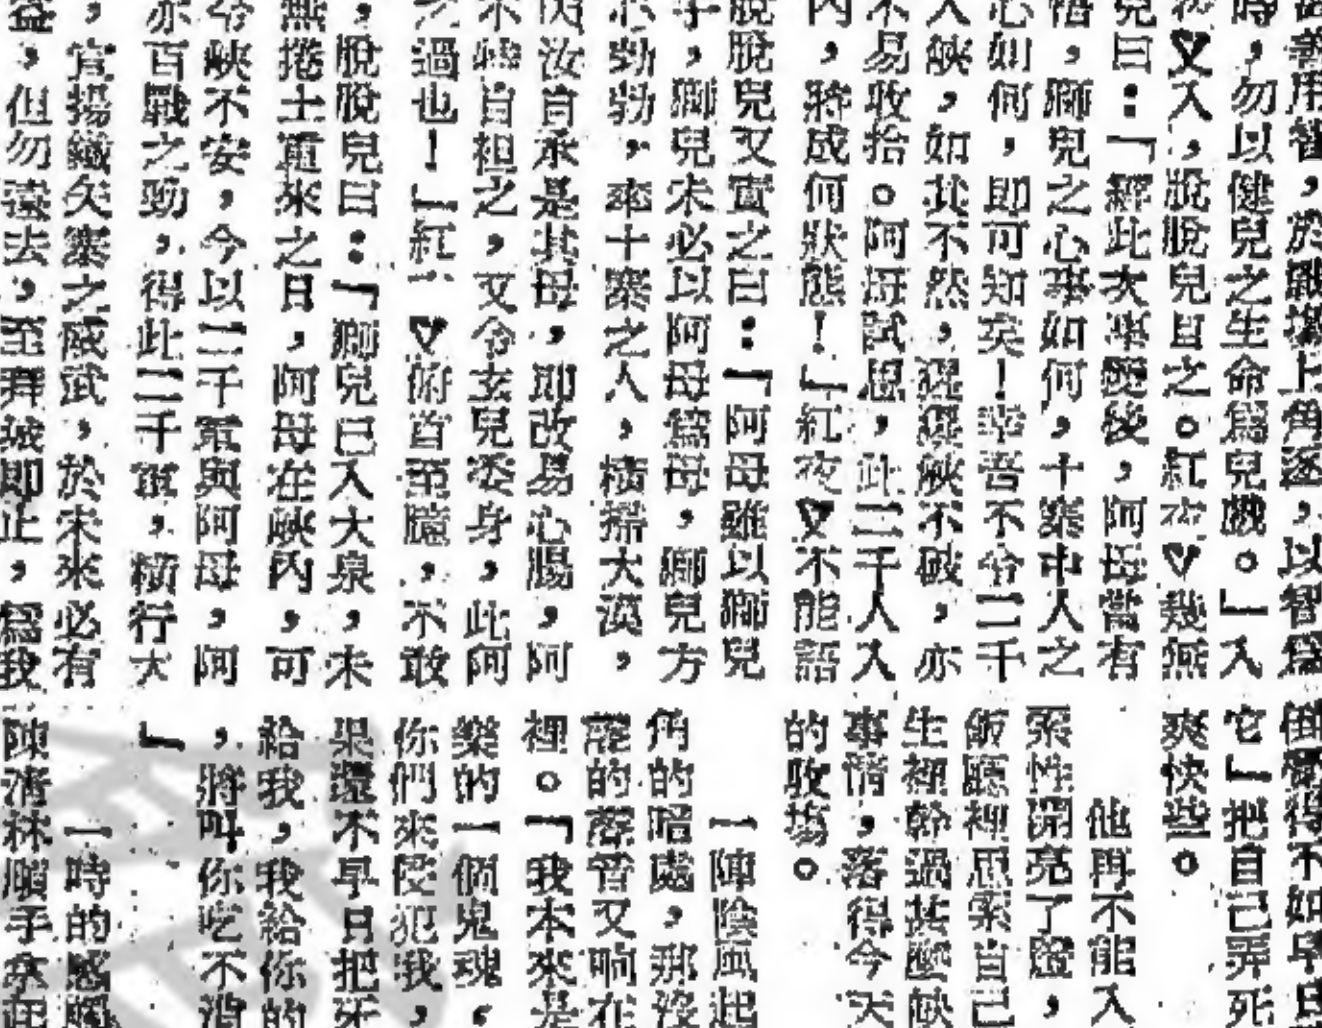 善用智，於戰場上角逐，以智爲
時，勿以健兒之生命爲兒戲。」入
又入，脫脫兒目之。紅夜▽幾無
兒曰：「經此次事變後，阿母當有
悟，獅兒之心事如何，十寨中人之
心如何，即可知矣！幸吾不令二千
人峽，如其不然，猩猩峽不破，亦
不易收拾。阿母試思，此二千人入
內，將成何狀態！」紅夜叉不能語
脫脫兒又實之曰：「阿母雖以獅兒
子，獅兒未必以阿母爲母，獅兒方
心勃勃，率十寨之人，橫掃大漠，
汝自承是其母，即改易心腸，阿
不 自担之，又令玄兒委身，此阿
之過也！」紅 ▽俯首至臆，不敢
，脫脫兒曰：「獅兒已入大泉，未
無捲土重來之日，阿母在峽內，可
令峽不安，今以二千軍與阿母，阿
亦百戰之勁，得此二千軍，橫行大
，宣揚鐵矢寨之威武，於未來必有
益，但勿遠去，至弃城即止，爲我
倒 得不如早
它」把自己弄死
爽快些。
他再不能入
索性開亮了燈，
飯廳裡思索自己
生裡幹過甚麼缺
事情，落得今天
的收塲。
一陣陰風起
角的暗處，那
的聲音又响在
裡。「我本來是
樂的一個鬼魂，
你們來侵犯我，
果還不早日把牙
給我，我給你的
，將叫你吃不消
」
一時的感觸
陳清林順手拿起